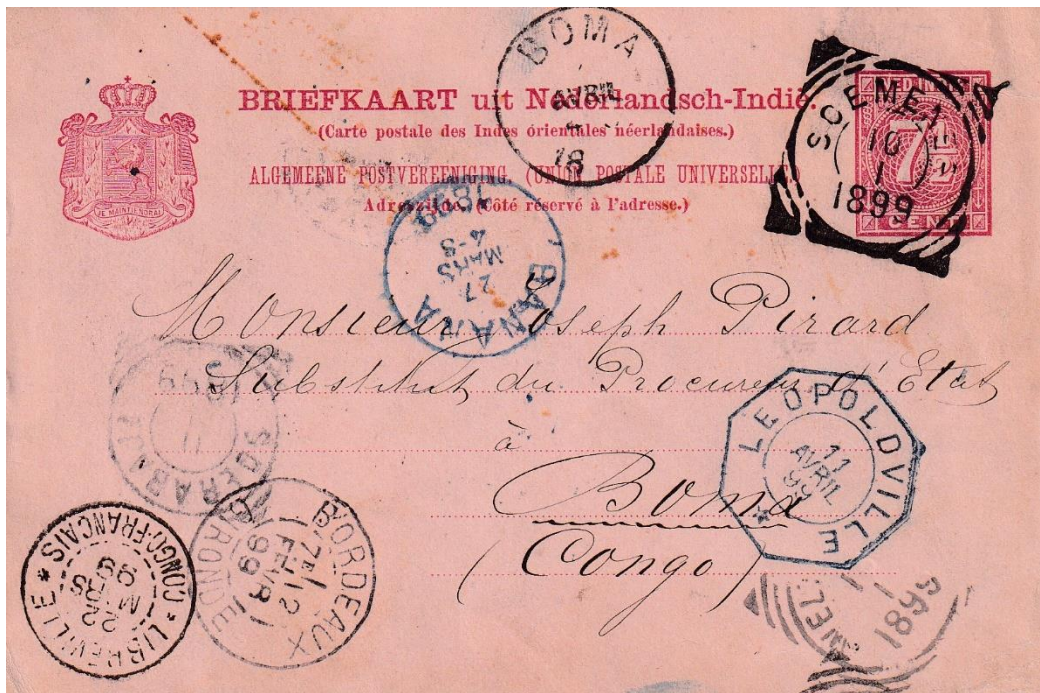 BRIEFKAART uit Nederlandsch-Indië.
(Carte postale des Indes órientales néerlandaises.)
ALGEMEENE POSTVEREENIGING. (UNION POSTALE UNIVERSELLE)
Adreszijde. (Côté réservé à l'adresse.)
JE MAINTIENDRAI
BOMA
AVRIL
18
NED-INDIË
7½
CENT
10
1
1899
BANANA
27
MARS
4-S
1899
Monsieur Joseph Pirard
Substitut du Procureur d'Etat
à
Boma
(Congo)
LEOPOLDVILLE
11
AVRIL
99
BORDEAUX
GIRONDE
7E
12
FEVR
99
CONGO-FRANCAIS
LIBREVILLE
22
MRS
99
1899